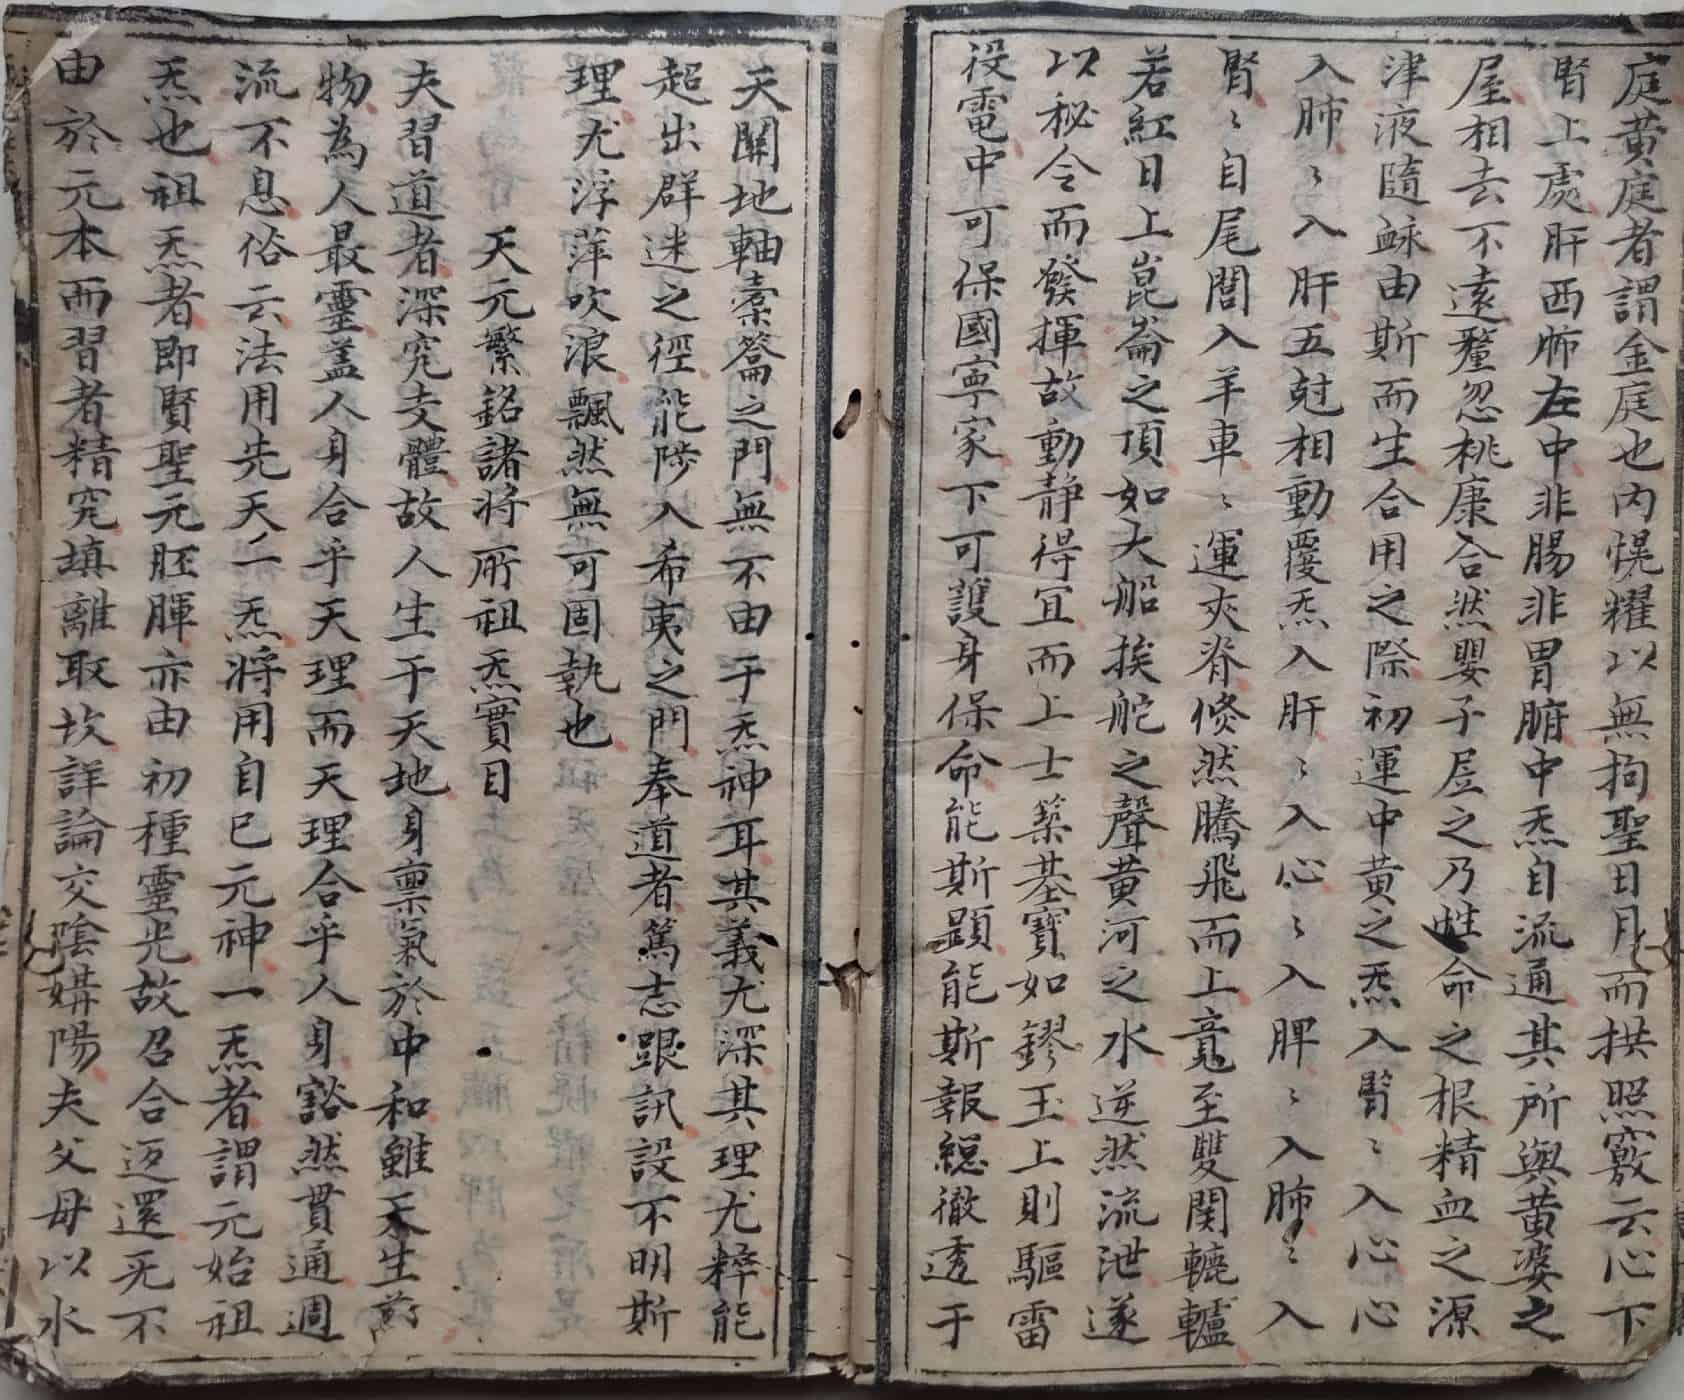 庭黄庭者謂金庭也内幌耀以無拘聖日月而拱照竅云心下
腎上處肝西肺左中非腸非胃腑中炁自流通其所與黄婆之
屋相去不遠釐忽桃康合然嬰子㞐之乃性命之根精血之源
津液隨𧖴由斯而生合用之際初運中黄之炁入腎〻入心心
入肺〻入肝五尅相動覆炁入肝〻入心〻入脾〻入肺〻入
腎〻自尾閭入羊車〻運夾脊倏然騰飛而上竟至雙関轆轤
若紅日上崑崙之頂如大船挨舵之聲黄河之水逆然流泄遂
以秘令而發揮故動静得宜而上士築基寳如鏐玉上則驅雷
役電中可保國寕家下可護身保命能斯顕能斯報総徹透于
天關地軸橐籥之門無不由于炁神耳其義尤深其理尤粹能
超出群迷之徑能陟入希夷之門奉道者篤志跟訊設不明斯
理尤浮萍吹浪飄然無可固執也
天元繁銘諸將所祖炁實目
夫習道者深究支體故人生于天地身禀氣於中和雖天生萬
物為人最靈盖人身合乎天理而天理合乎人身豁然貫通週
流不息俗云法用先天一炁將用自已元神一炁者謂元始祖
炁也祖炁者即賢聖元胚腪亦由初種靈光故召合迈還旡不
由於元本而習者精究填離取坎詳論交陰媾陽夫父母以水